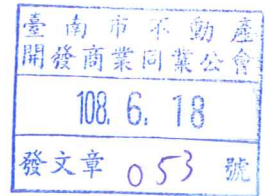 臺南市不動產
開發商業同業公會
108. 6. 18
發文章 053 號